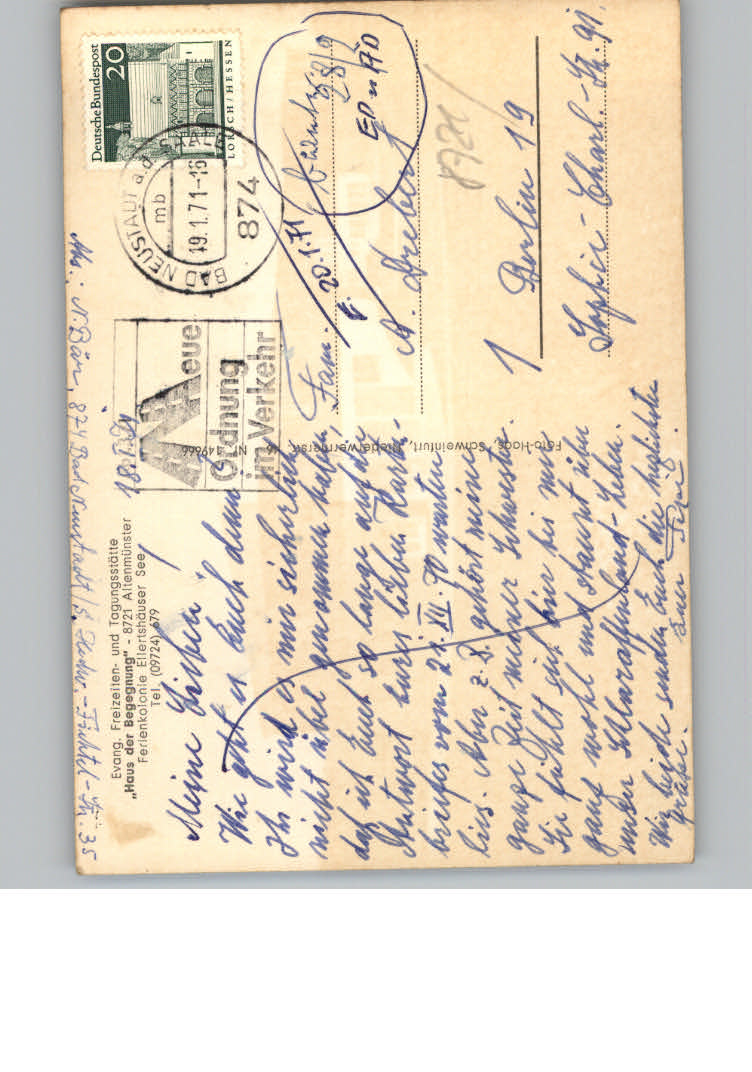 Abs.: N. Bär, 874 Bad Neustadt/S., -Str. 35
Evang. Freizeiten- und Tagungsstätte
„Haus der Begegnung" - 8721 Altenmünster
Ferienkolonie Ellertshäuser See
Tel. (09724) 679
18.1.71
Meine Lieben!
Wie geht es Euch denn?
Ihr wird es mir sicherlich
nicht übel genommen haben,
daß ich Euch so lange auf die
Antwort Eures lieben Karten-
briefes vom 21. XII. 70 warten
ließ. Aber z. Z. gehört meine
ganze Zeit meiner Schwester.
Sie fühlt sich hier bei mir
ganz wohl u. staunt über
unser Schlaraffenland-Leben.
Wir beide senden Euch die herzlichsten
Grüße. Eure
Foto-Haas, Schweinfurt, Niederwerrnerstr. Nr. 149666
Neue
Ordnung
im Verkehr
BAD NEUSTADT a.d. SAALE
mb
19.1.71-16
874
Deutsche Bundespost
20
LORSCH/HESSEN
Fam.
20.1.71
E.
5 8/9
ED n AD
A. Drebert
8721
1 Berlin 19
Sophie-Charl.-Str. 91